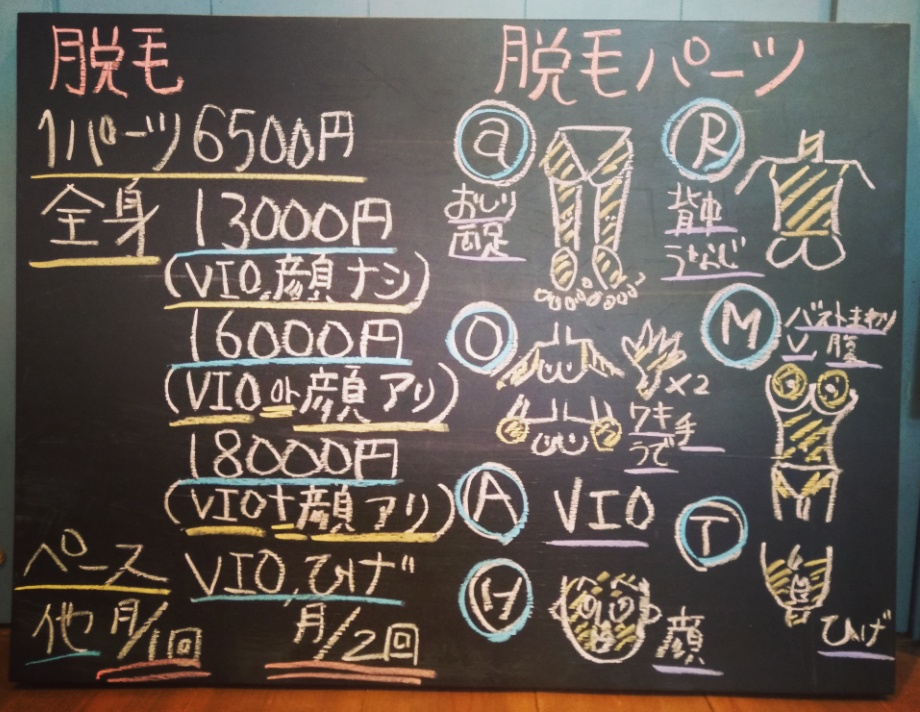 脱毛
1パーツ 6500円
全身 13000円
(VIO,顔ナシ)
16000円
(VIO or 顔アリ)
18000円
(VIO+顔アリ)
ペース VIO,ひげ
他 月/1回 月/2回
脱毛パーツ
a
おしり
両足
R
背中
うなじ
O
×2
ワキ 手
うで
M
バストまわり
V 腹
A VIO
T
ひげ
H
顔